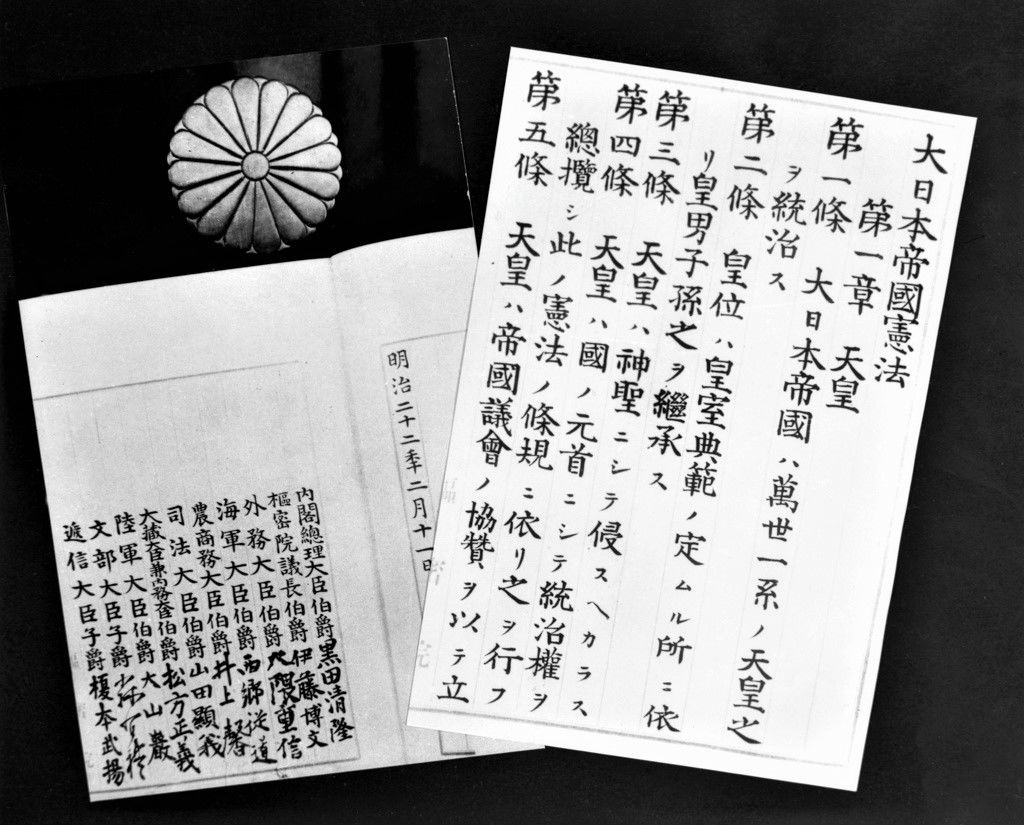 大日本帝國憲法
第一章 天皇
第一條 大日本帝國ハ萬世一系ノ天皇之
ヲ統治ス
第二條 皇位ハ皇室典範ノ定ムル所ニ依
リ皇男子孫之ヲ繼承ス
第三條 天皇ハ神聖ニシテ侵スヘカラス
第四條 天皇ハ國ノ元首ニシテ統治權ヲ
總攬シ此ノ憲法ノ條規ニ依リ之ヲ行フ
第五條 天皇ハ帝國議會ノ協贊ヲ以テ立
明治二十二秊二月十一日
內閣總理大臣伯爵黑田清隆
樞密院議長伯爵伊藤博文
外務大臣伯爵大隈重信
海軍大臣伯爵西鄉從道
農商務大臣伯爵井上馨
司法大臣伯爵山田顯義
大藏大臣兼內務大臣伯爵松方正義
陸軍大臣伯爵大山巖
文部大臣子爵
遞信大臣子爵榎本武揚